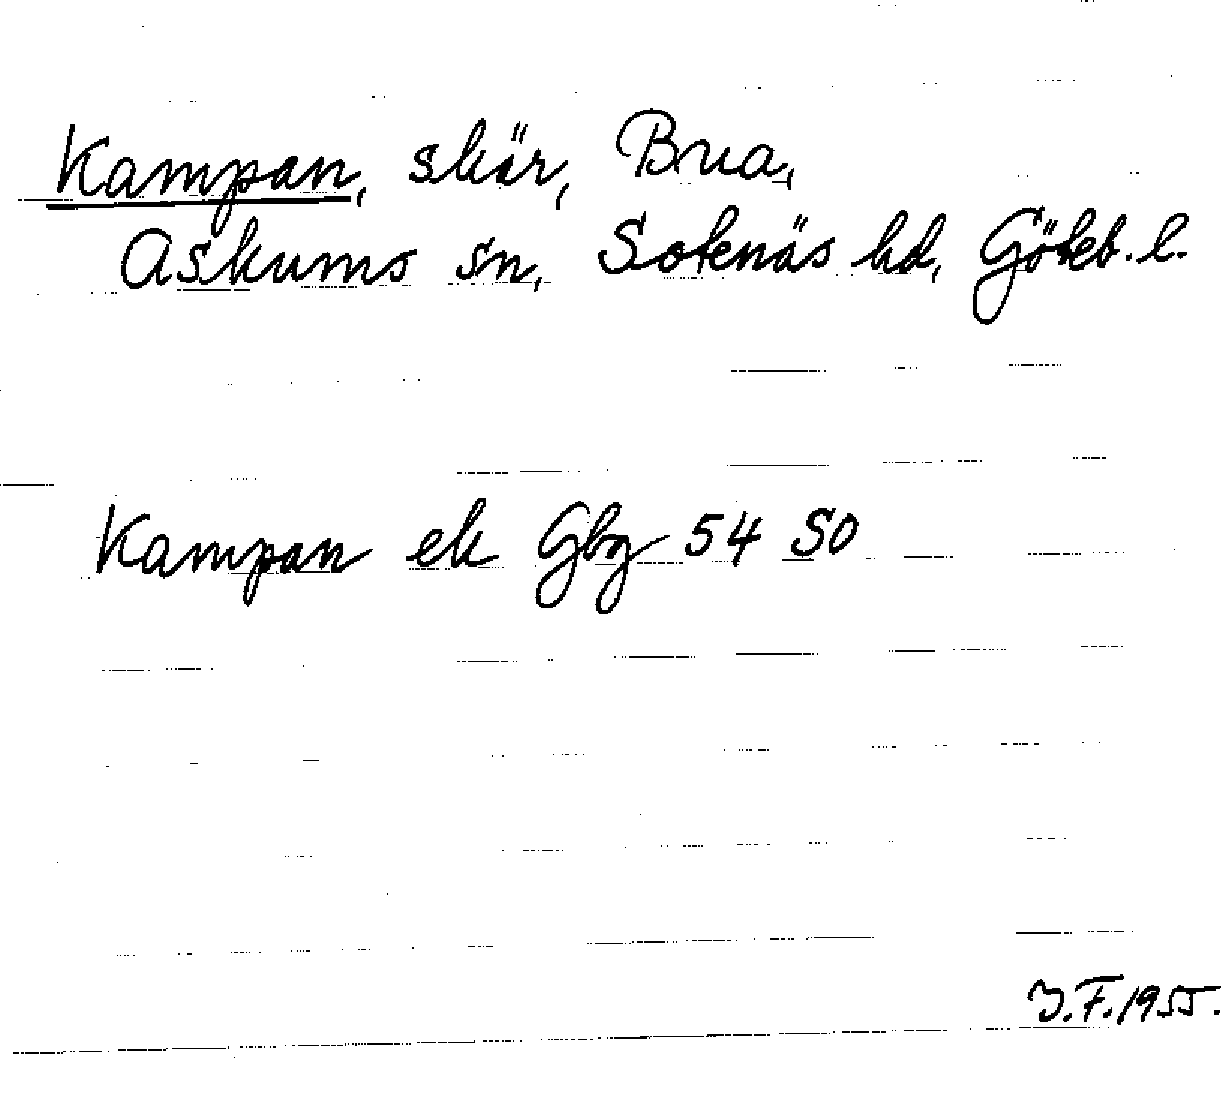 Kampan, skär, Brua,
Askums sn, Sotenäs hd, Göteb. l.
Kampan ek Gbg 54 SO
J.F. 1955.